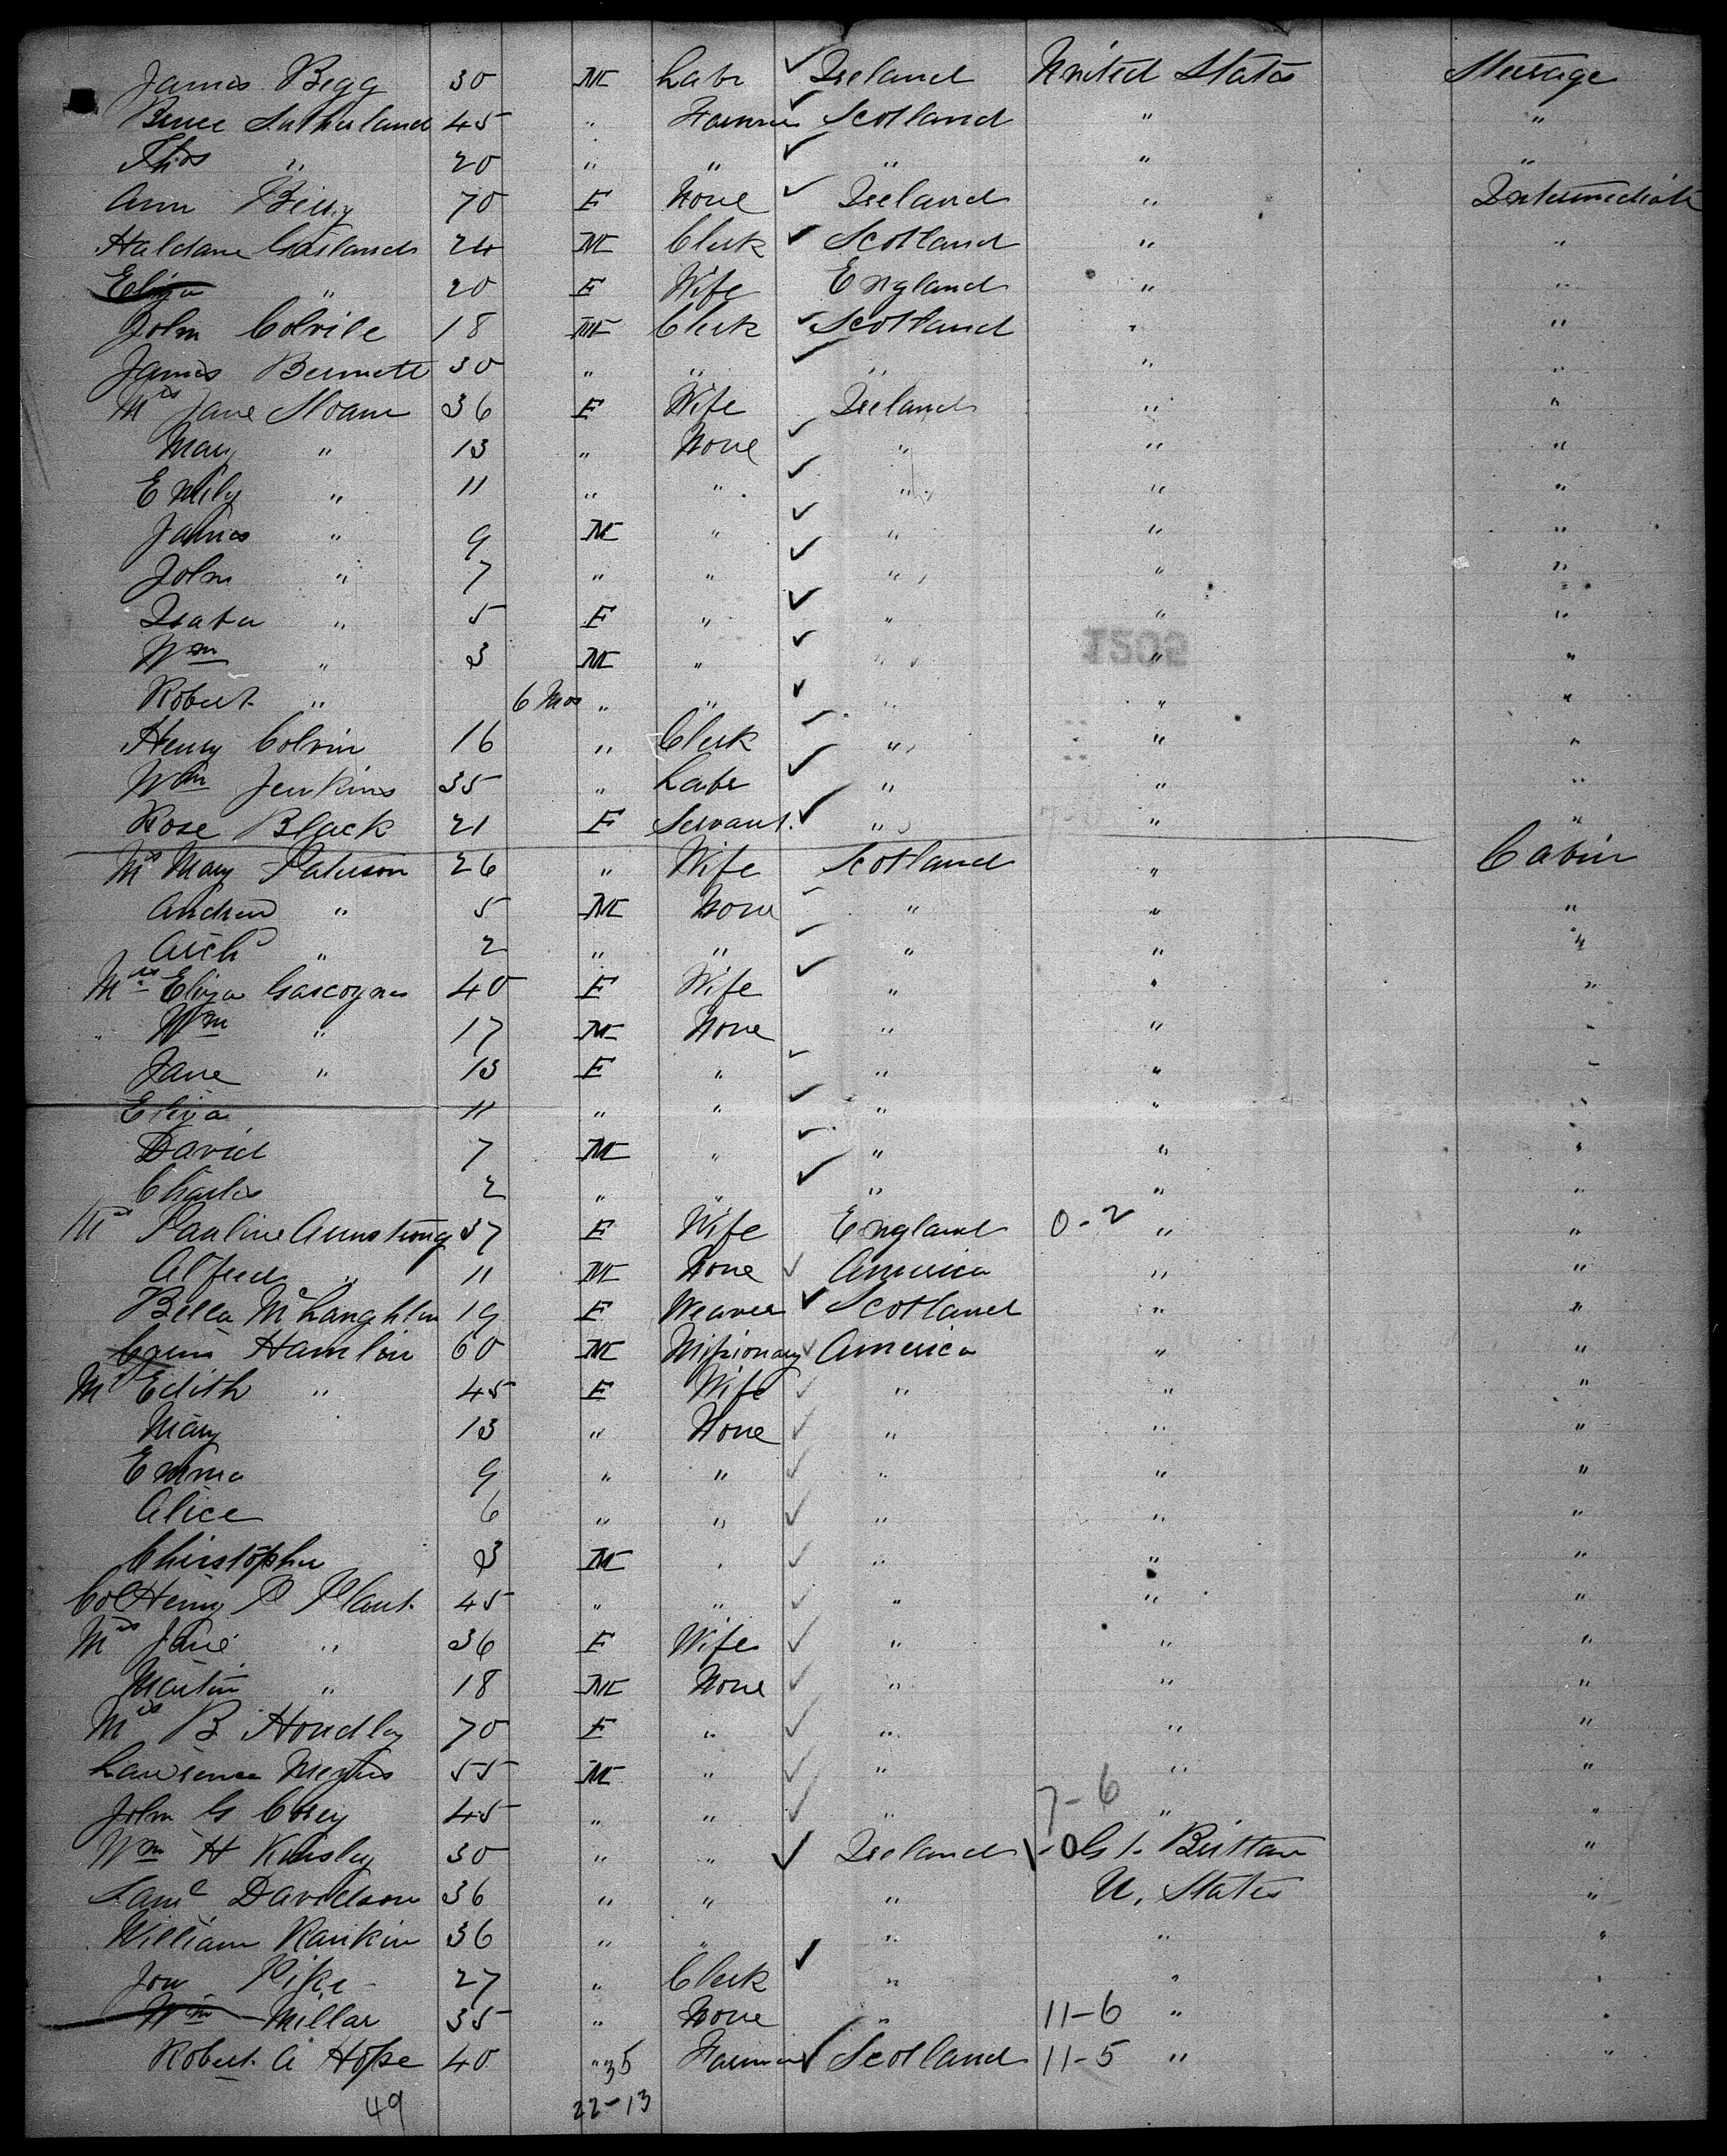 James Begg 30 M Labr ✓ Ireland United States Steerage
Bruce Sutherland 45 " Farmer ✓ Scotland " "
Thos " 20 " " ✓ " " "
Ann Berry 70 F None ✓ Ireland " Intermediate
Haldane Gasland 24 M Clerk ✓ Scotland " "
Eliza " 20 F Wife England " "
John Colvile 18 M Clerk ✓ Scotland " "
James Bennett 30 " " ✓ " " "
Mrs Jane Sloane 36 F Wife Ireland " "
Mary " 13 " None ✓ " " "
Emily " 11 " " ✓ " " "
James " 9 M " ✓ " " "
John " 7 " " ✓ " " "
Isaba " 5 F " ✓ " " "
Wm " 3 M " ✓ " " "
1502
Robert " 6 Mos " " ✓ " " "
Henry Colvin 16 " Clerk ✓ " " "
Wm Jenkins 35 " Labr ✓ " " "
Rose Black 21 F Servant ✓ " " "
Mrs Mary Paterson 26 " Wife Scotland " Cabin
Andrew " 5 M None ✓ " " "
Archd " 2 " " ✓ " " "
Mrs Eliza Gascoyne 40 F Wife ✓ " " "
Wm " 17 M None " " "
Jane " 13 F " ✓ " " "
Eliza 11 " " ✓ " " "
David 7 M " ✓ " " "
Charles 2 " " ✓ " " "
Mrs Pauline Armstrong 37 F Wife England 0-2 " "
Alfred " 11 M None ✓ America " "
Bella McLaughlin 19 F Weaver ✓ Scotland " "
Cyrus Hamlin 60 M Missionary ✓ America " "
Mrs Edith " 45 F Wife ✓ " " "
Mary 13 " None ✓ " " "
Emma 9 " " ✓ " " "
Alice 6 " " ✓ " " "
Christopher 3 M " ✓ " " "
Col Henry P Plant 45 " " ✓ " " "
Mrs Jane " 36 F Wife ✓ " " "
Martin " 18 M None ✓ " " "
Mrs B Hondley 70 F " ✓ " " "
Lawrence 55 M " ✓ " " "
John G Corey 45 " " ✓ " 7-6 " "
Wm H Kinsley 30 " " ✓ Ireland Gt. Brittan "
Saml Davidson 36 " " " U. States "
William Rankin 36 " " " " "
Jon Pike 27 " Clerk ✓ " " "
Wm Millar 35 " None " 11-6 " "
Robert A Hope 40 " Farmer ✓ Scotland 11-5 " "
35
49 22-13